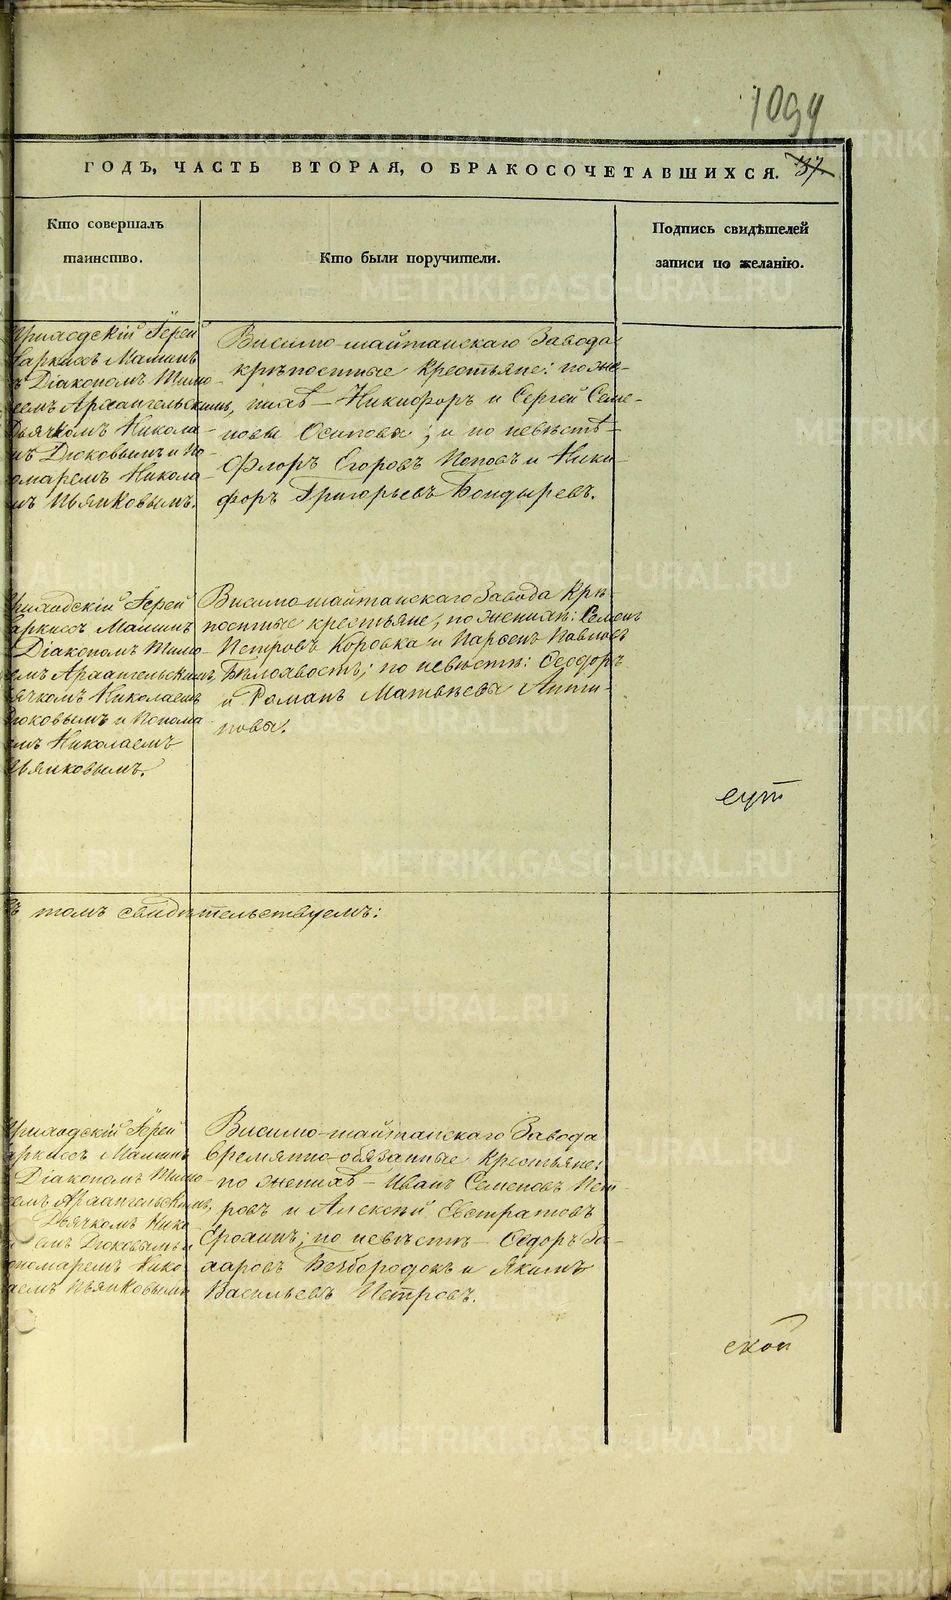 1094
ГОДЪ, ЧАСТЬ ВТОРАЯ, О БРАКОСОЧЕТАВШИХСЯ. 37
Кто совершалъ
таинство.
Кто были поручители.
Подпись свидѣтелей
записи по желанію.
Приходскій Іерей
Наркисъ Маминъ
съ Діакономъ Тимо-
ѳеемъ Архангельскимъ,
Дьячкомъ Никола-
емъ Дюковымъ и По-
номаремъ Никола-
емъ Пьянковымъ.
Висимо-шайтанскаго Завода
крѣпостные крестьяне: по же-
нихѣ – Никифоръ и Сергѣй Семе-
новы Осиповы; и по невѣстѣ –
Флоръ Егоровъ Поповъ и Ники-
форъ Григорьевъ Бондыревъ.
Приходскій Іерей
Наркисъ Маминъ
Діакономъ Тимо-
ѳеемъ Архангельскимъ,
Дьячкомъ Николаемъ
Дюковымъ и Понома-
ремъ Николаемъ
Пьянковымъ.
Висимо шайтанскаго Завода Крѣ-
постные крестьяне, по женихѣ: Семенъ
Петровъ Коровка и Парѳенъ Павловъ
Бѣлохвостъ; по невѣстѣ: Ѳеодоръ
и Романъ Матвѣевы Анти-
повы.
еут
въ томъ свидѣтельствуемъ:
Приходскій Іерей
Наркисъ Маминъ
Діакономъ Тимо-
ѳеемъ Архангельскимъ,
Дьячкомъ Нико-
лаемъ Дюковымъ и
Пономаремъ Нико-
лаемъ Пьянковымъ
Висимо-шайтанскаго Завода
временно-обязанные крестьяне:
по женихѣ – Иванъ Семеновъ Пет-
ровъ и Алексѣй Евстратовъ
Ерохинъ; по невѣстѣ – Ѳедоръ За-
харовъ Безбородокъ и Якимъ
Васильевъ Петровъ.
ской
METRIKI.GASO-URAL.RU